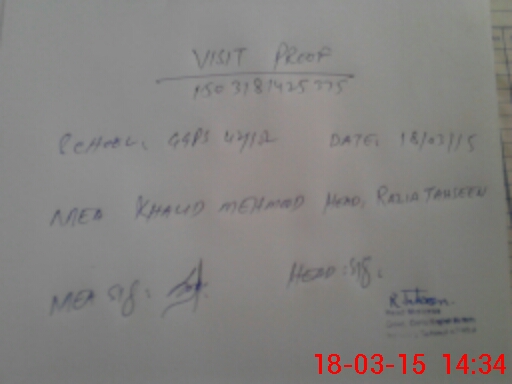 VISIT PROOF
1503181425275
SCHOOL: GGPS 42/12 DATE: 18/03/15
MEA KHALID MEHMOOD HEAD, RAZIA TAHSEEN
MEA sig: HEAD: sig:
R. Tahseen
18-03-15 14:34